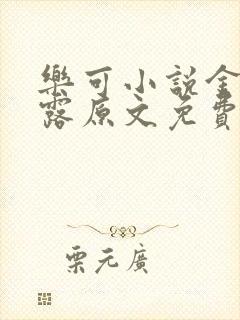 樂可小說金
露原文免費
栗元廣